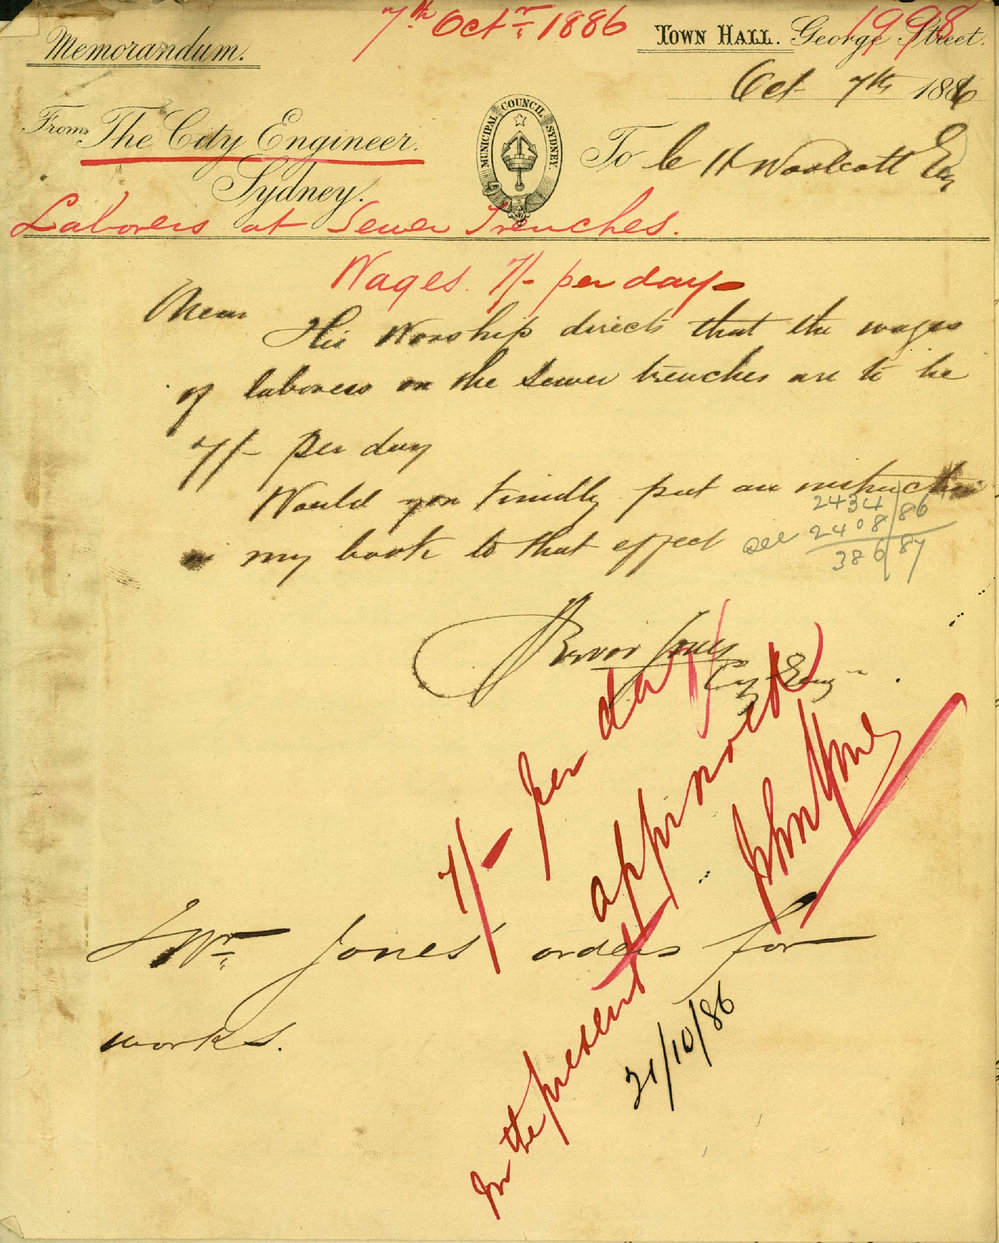 7th Octr 1886
1998
Memorandum.
TOWN HALL. George Street.
Oct 7th 1886
From The City Engineer.
Sydney.
MUNICIPAL COUNCIL SYDNEY
To C H Woolcott Esq
Laborers at Sewer Trenches.
Wages. 7/- per day
Mem
His Worship directs that the wages
of laborers on the Sewer trenches are to be
7/- per day
Would you kindly put an instruction
in my book to that effect
see 2434/86
2408/86
386/87
Trevor Jones
City Engr
7/- per day
approved
John Young
In the present
Mr Jones' orders for
works.
21/10/86